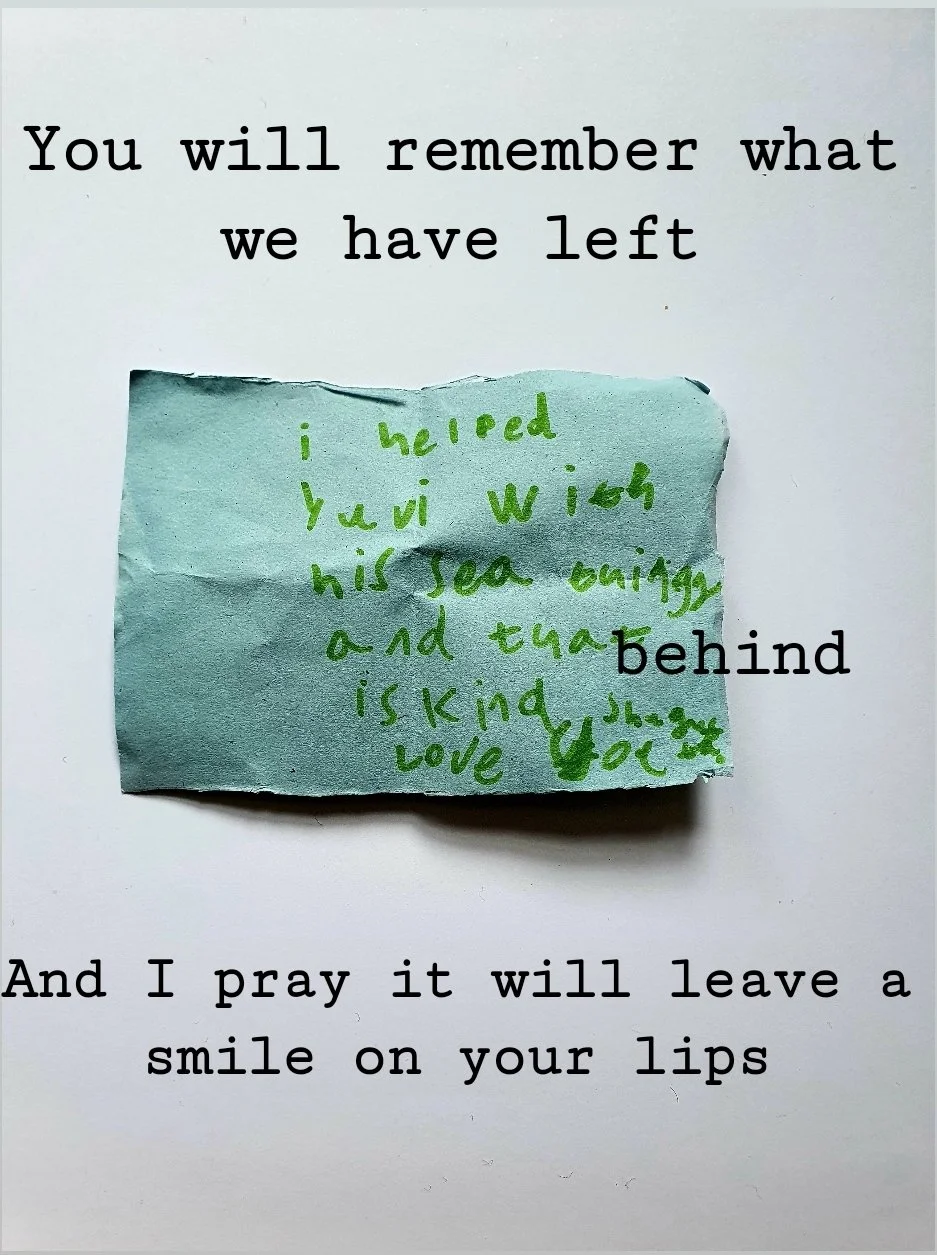 You will remember what
we have left
i helped
Yuvi with
his sea
and that
behind
is kind
Love
And I pray it will leave a
smile on your lips